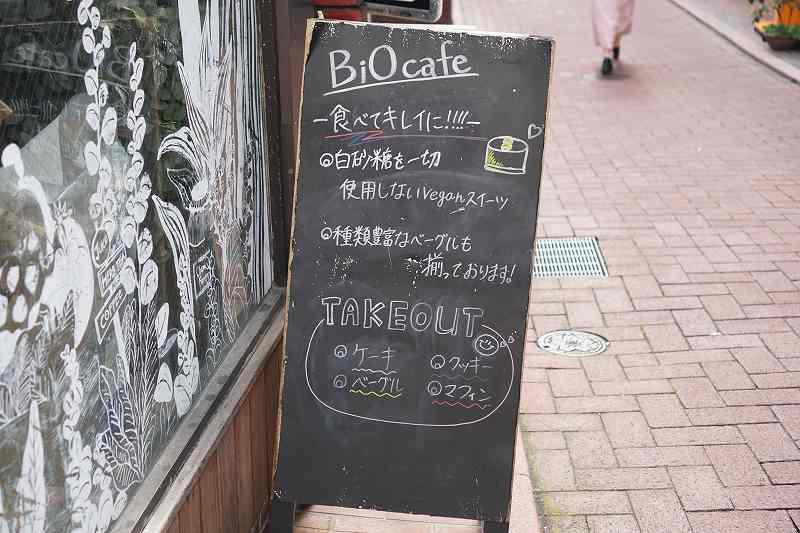 BiO cafe
ー食べてキレイに!!!!ー
白砂糖を一切
使用しないveganスイーツ
種類豊富なベーグルも
揃っております!
TAKEOUT
ケーキ クッキー
ベーグル マフィン